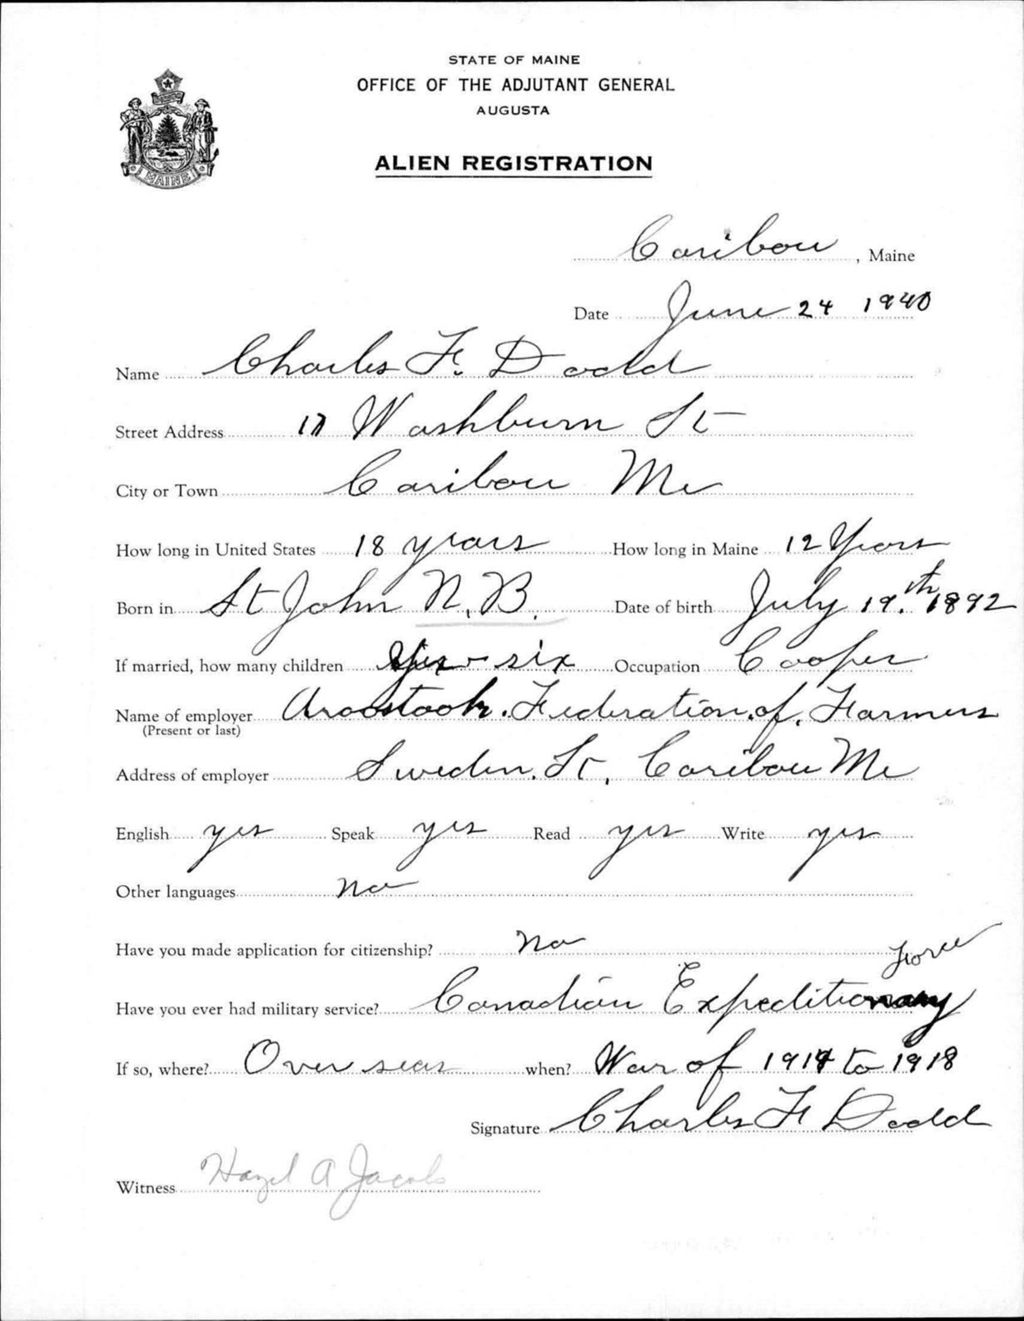 STATE OF MAINE
OFFICE OF THE ADJUTANT GENERAL
AUGUSTA
ALIEN REGISTRATION
MAINE
Caribou, Maine
Date June 24 1940
Name Charles F. Dodd
Street Address 17 Washburn St
City or Town Caribou Me
How long in United States 18 years How long in Maine 12 Years
Born in St John N.B. Date of birth July 19.th 1892
If married, how many children Yes - six Occupation Cooper
Name of employer Aroostook. Federation. of. Farmers
(Present or last)
Address of employer Sweden. St, Caribou Me
English yes Speak yes Read yes Write yes
Other languages No
Have you made application for citizenship? No
Have you ever had military service? Canadian Expeditionary Force
If so, where? Over seas when? War of 1914 to 1918
Signature Charles F Dodd
Witness Hazel A Jacobs